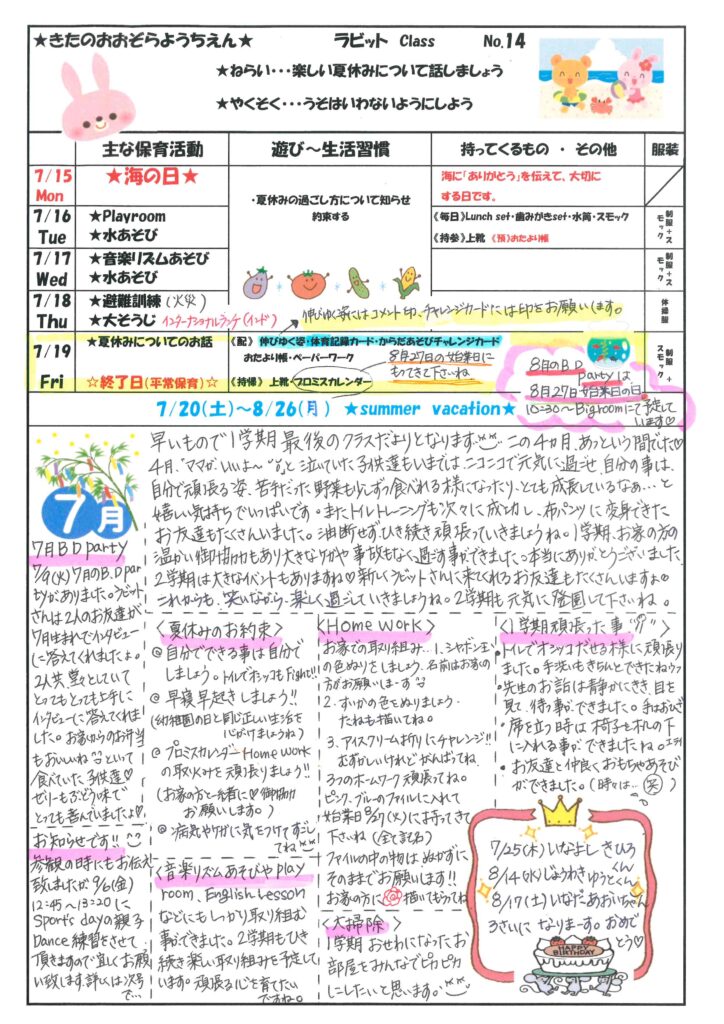 ★きたのおおぞらようちえん★ ラビット Class No.14
★ねらい・・・楽しい夏休みについて話しましょう
★やくそく・・・うそはいわないようにしよう
主な保育活動 遊び～生活習慣 持ってくるもの ・ その他 服装
7/15 Mon
★海の日★
・夏休みの過ごし方について知らせ
約束する
海に「ありがとう」を伝えて、大切に
する日です。
7/16 Tue
★Playroom
★水あそび
《毎日》Lunch set・歯みがきset・水筒・スモック
《持参》上靴 《預》おたより帳
制服+スモック
7/17 Wed
★音楽リズムあそび
★水あそび
制服+スモック
7/18 Thu
★避難訓練(火災)
★大そうじ インターナショナルランチ(インド)
伸びゆく姿にはコメント印、チャレンジカードには印をお願いします。
体操服
7/19 Fri
★夏休みについてのお話
☆終了日(平常保育)☆
《配》伸びゆく姿・体育記録カード・からだあそびチャレンジカード
おたより帳・ペーパーワーク
《持帰》上靴・プロミスカレンダー
8月27日の始業日に
もってきて下さいね
制服+スモック
8月のB.D
partyは
8月27日始業日の日
10:30～Big roomにて予定して
います♡
7/20(土)～8/26(月) ★summer vacation★
7月
早いもので1学期最後のクラスだよりとなります この4ヵ月、あっという間でした♡
4月、"ママがいいよ～"と泣いていた子供達もいまでは、ニコニコで元気に過ごせ、自分の事は、
自分で頑張る姿、苦手だった野菜も少しずつ食べれる様になったり、とても成長しているなぁ…と
嬉しい気持ちでいっぱいです。またトイレトレーニングも次々に成功し、布パンツに変身できた
お友達もたくさんいました。油断せず、ひき続き頑張っていきましょうね。1学期、お家の方の
温かい御協力もあり大きなケガや事故もなく過ごす事ができました。本当にありがとうございました。
2学期は大きなイベントもありますね♡新しくラビットさんに来てくれるお友達もたくさんいますよ♡
これからも、笑いながら、楽しく過ごしていきましょうね。2学期も元気に登園して下さいね。
7月BD party
7/9(火)7月のB.D par
tyがありました。ラビット
さんは2人のお友達が
7月生まれでインタビュー
に答えてくれましたよ。
2人共、堂々としていて
とってもとっても上手に
インタビューに答えてくれま
した。お家からのお弁当
もおいしいねといって
食べていた子供達♡
ゼリーもぶどう味で
とっても喜んでましたよ♡
お知らせです!!
参観の時にもお伝え
致しましたが9/6(金)
12:45～13:20に
Sports dayの親子
Dance練習をさせて
頂きますので宜しくお願
い致します。詳しくは次号
で…
<夏休みのお約束>
@ 自分でできる事は自分で
しましょう。トイレでオシッコもFight!!
@ 早寝早起きしましょう!!
(幼稚園の日と同じ正しい生活を
心がけましょうね)
@ プロミスカレンダー・Home work
の取りくみを頑張りましょう!!
(お家の方と一緒に♡御協力
お願いします。)
@ 病気やケガに気をつけてすごし
てね
<音楽リズムあそびやPlay
room、English Lesson
などにもしっかり取り組む
事ができました。2学期もひき
続き楽しい取り組みを予定して
います。頑張る心を育てたい
ですね。
<Home Work>
お家での取り組み… 1.シャボン玉
の色ぬりをしましょう。名前はお家の
方がお願いしまーす
2.すいかの色をぬりましょう。
たねも描いてね。
3.アイスクリーム折りにチャレンジ!!
むずかしいけれどがんばってね。
3つのホームワーク頑張ってね。
ピンク、ブルーのファイルに入れて
始業日8/27(火)には持ってきて
下さいね(全て記名)
ファイルの中の物は、ぬかずに
そのままでお願いします!!
お家の方に 描いてもらってね
<大掃除>
1学期おせわになったお
部屋をみんなでピカピカ
にしたいと思います。
<1学期頑張った事>
・トイレでオシッコだせる様に頑張り
ました。手洗いもきちんとできたね
・先生のお話は静かにきき、目を
見て待つ事ができました。手はおひざ
・席を立つ時は椅子を机の下
に入れる事ができましたね。
・お友達と仲良くおもちゃあそび
ができました。(時々は… 笑)
7/25(木)いなよし きひろくん
8/14(水)じょうわき ゆうとくん
8/17(土)いなだ あおいちゃん
3さいに なりまーす。おめで
とう♡
HAPPY
BIRTHDAY